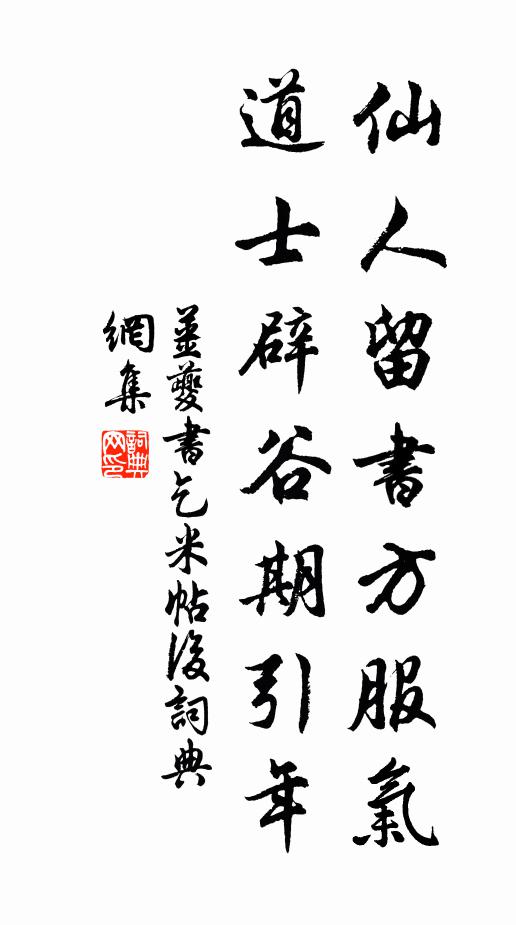 仙人留書方服氣
道士辟谷期引年
姜夔書乞米帖後詞典
網集
詞典網印